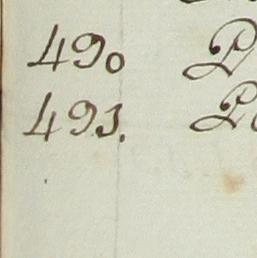 490 P
491. P